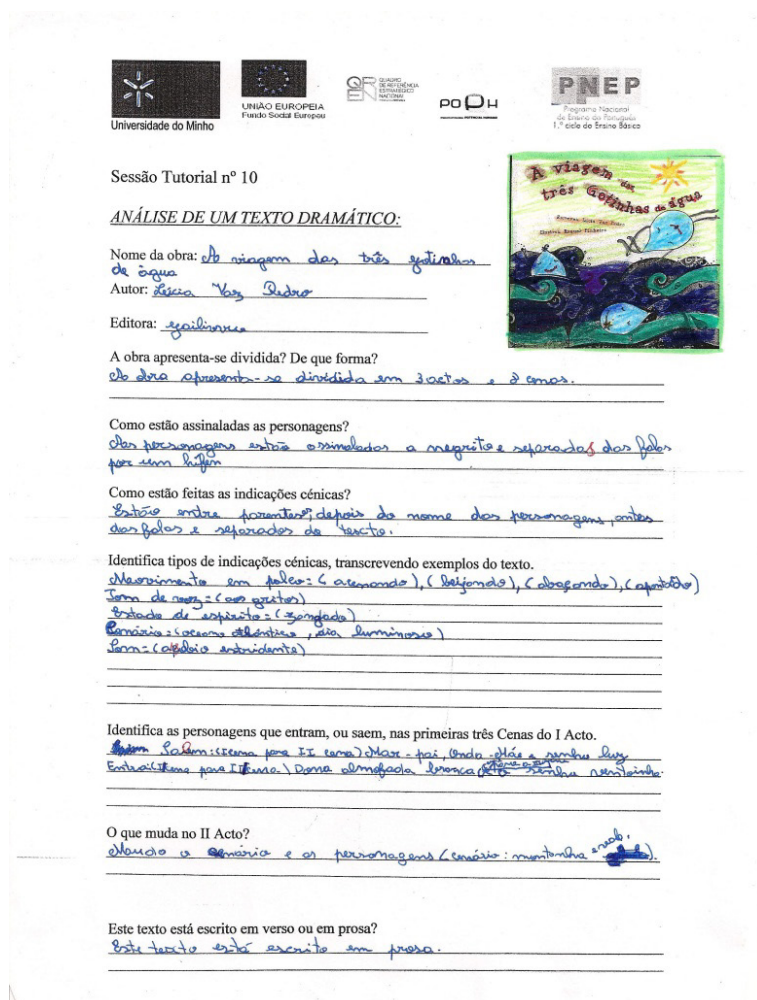 Universidade do Minho
UNIÃO EUROPEIA
Fundo Social Europeu
QREN
QUADRO
DE REFERÊNCIA
ESTRATÉGICO
NACIONAL
POPH
PNEP
Programa Nacional
de Ensino do Português
1.º ciclo do Ensino Básico
Sessão Tutorial nº 10
A viagem das
três Gotinhas de água
ANÁLISE DE UM TEXTO DRAMÁTICO:
Nome da obra: A viagem das três gotinhas
de àgua
Autor: Lúcia Vaz Pedro
Editora:
A obra apresenta-se dividida? De que forma?
A obra apresenta-se dividida em 3 actos e 8 cenas.
Como estão assinaladas as personagens?
As personagens estão assinaladas a negrito e separadas das falas
por um hífen
Como estão feitas as indicações cénicas?
Estão entre parenteses, depois do nome das personagens, antes
das falas e separadas do texto.
Identifica tipos de indicações cénicas, transcrevendo exemplos do texto.
Movimento em palco: (acenando), (beijando), (abaçando), (apontado)
Tom de voz: (aos gritos)
Estado de espirito: (zangado)
Cenário: (oceano atlântico, dia luminoso)
Som: (aploio estridente)
Identifica as personagens que entram, ou saem, nas primeiras três Cenas do I Acto.
Saem: (I cena para II cena) Mar-pai, Onda-Mãe e senhu luz
Entra: (II cena para III cena) Dona almofada branca senhu ventoinha.
O que muda no II Acto?
Muda o cenário e as personagens (cenário: montanha e
Este texto está escrito em verso ou em prosa?
Este texto está escrito em prosa.